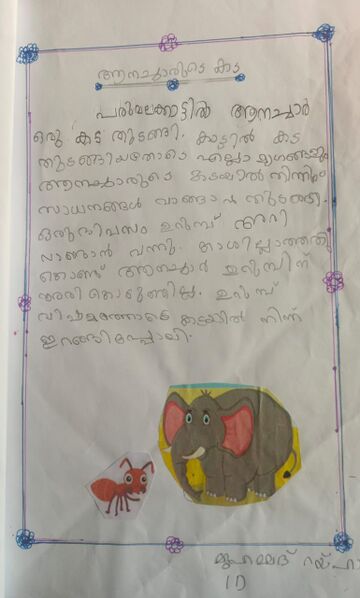 ആനച്ചാരുടെ കട
പരുമലക്കാട്ടിൽ ആനച്ചാർ
ഒരു കട തുടങ്ങി. കാട്ടിൽ കട
തുടങ്ങിയതോടെ എല്ലാ മൃഗങ്ങളും
ആനച്ചാരുടെ കടയിൽ നിന്നും
സാധനങ്ങൾ വാങ്ങാൻ തുടങ്ങി.
ഒരു ദിവസം ഉറുമ്പ് അരി
വാങ്ങാൻ വന്നു. കാശില്ലാത്തതു
കൊണ്ട് ആനച്ചാർ ഉറുമ്പിന്
അരി കൊടുത്തില്ല. ഉറുമ്പ്
വിഷമത്തോടെ കടയിൽ നിന്ന്
ഇറങ്ങിപ്പോയി.
മുഹമ്മദ്